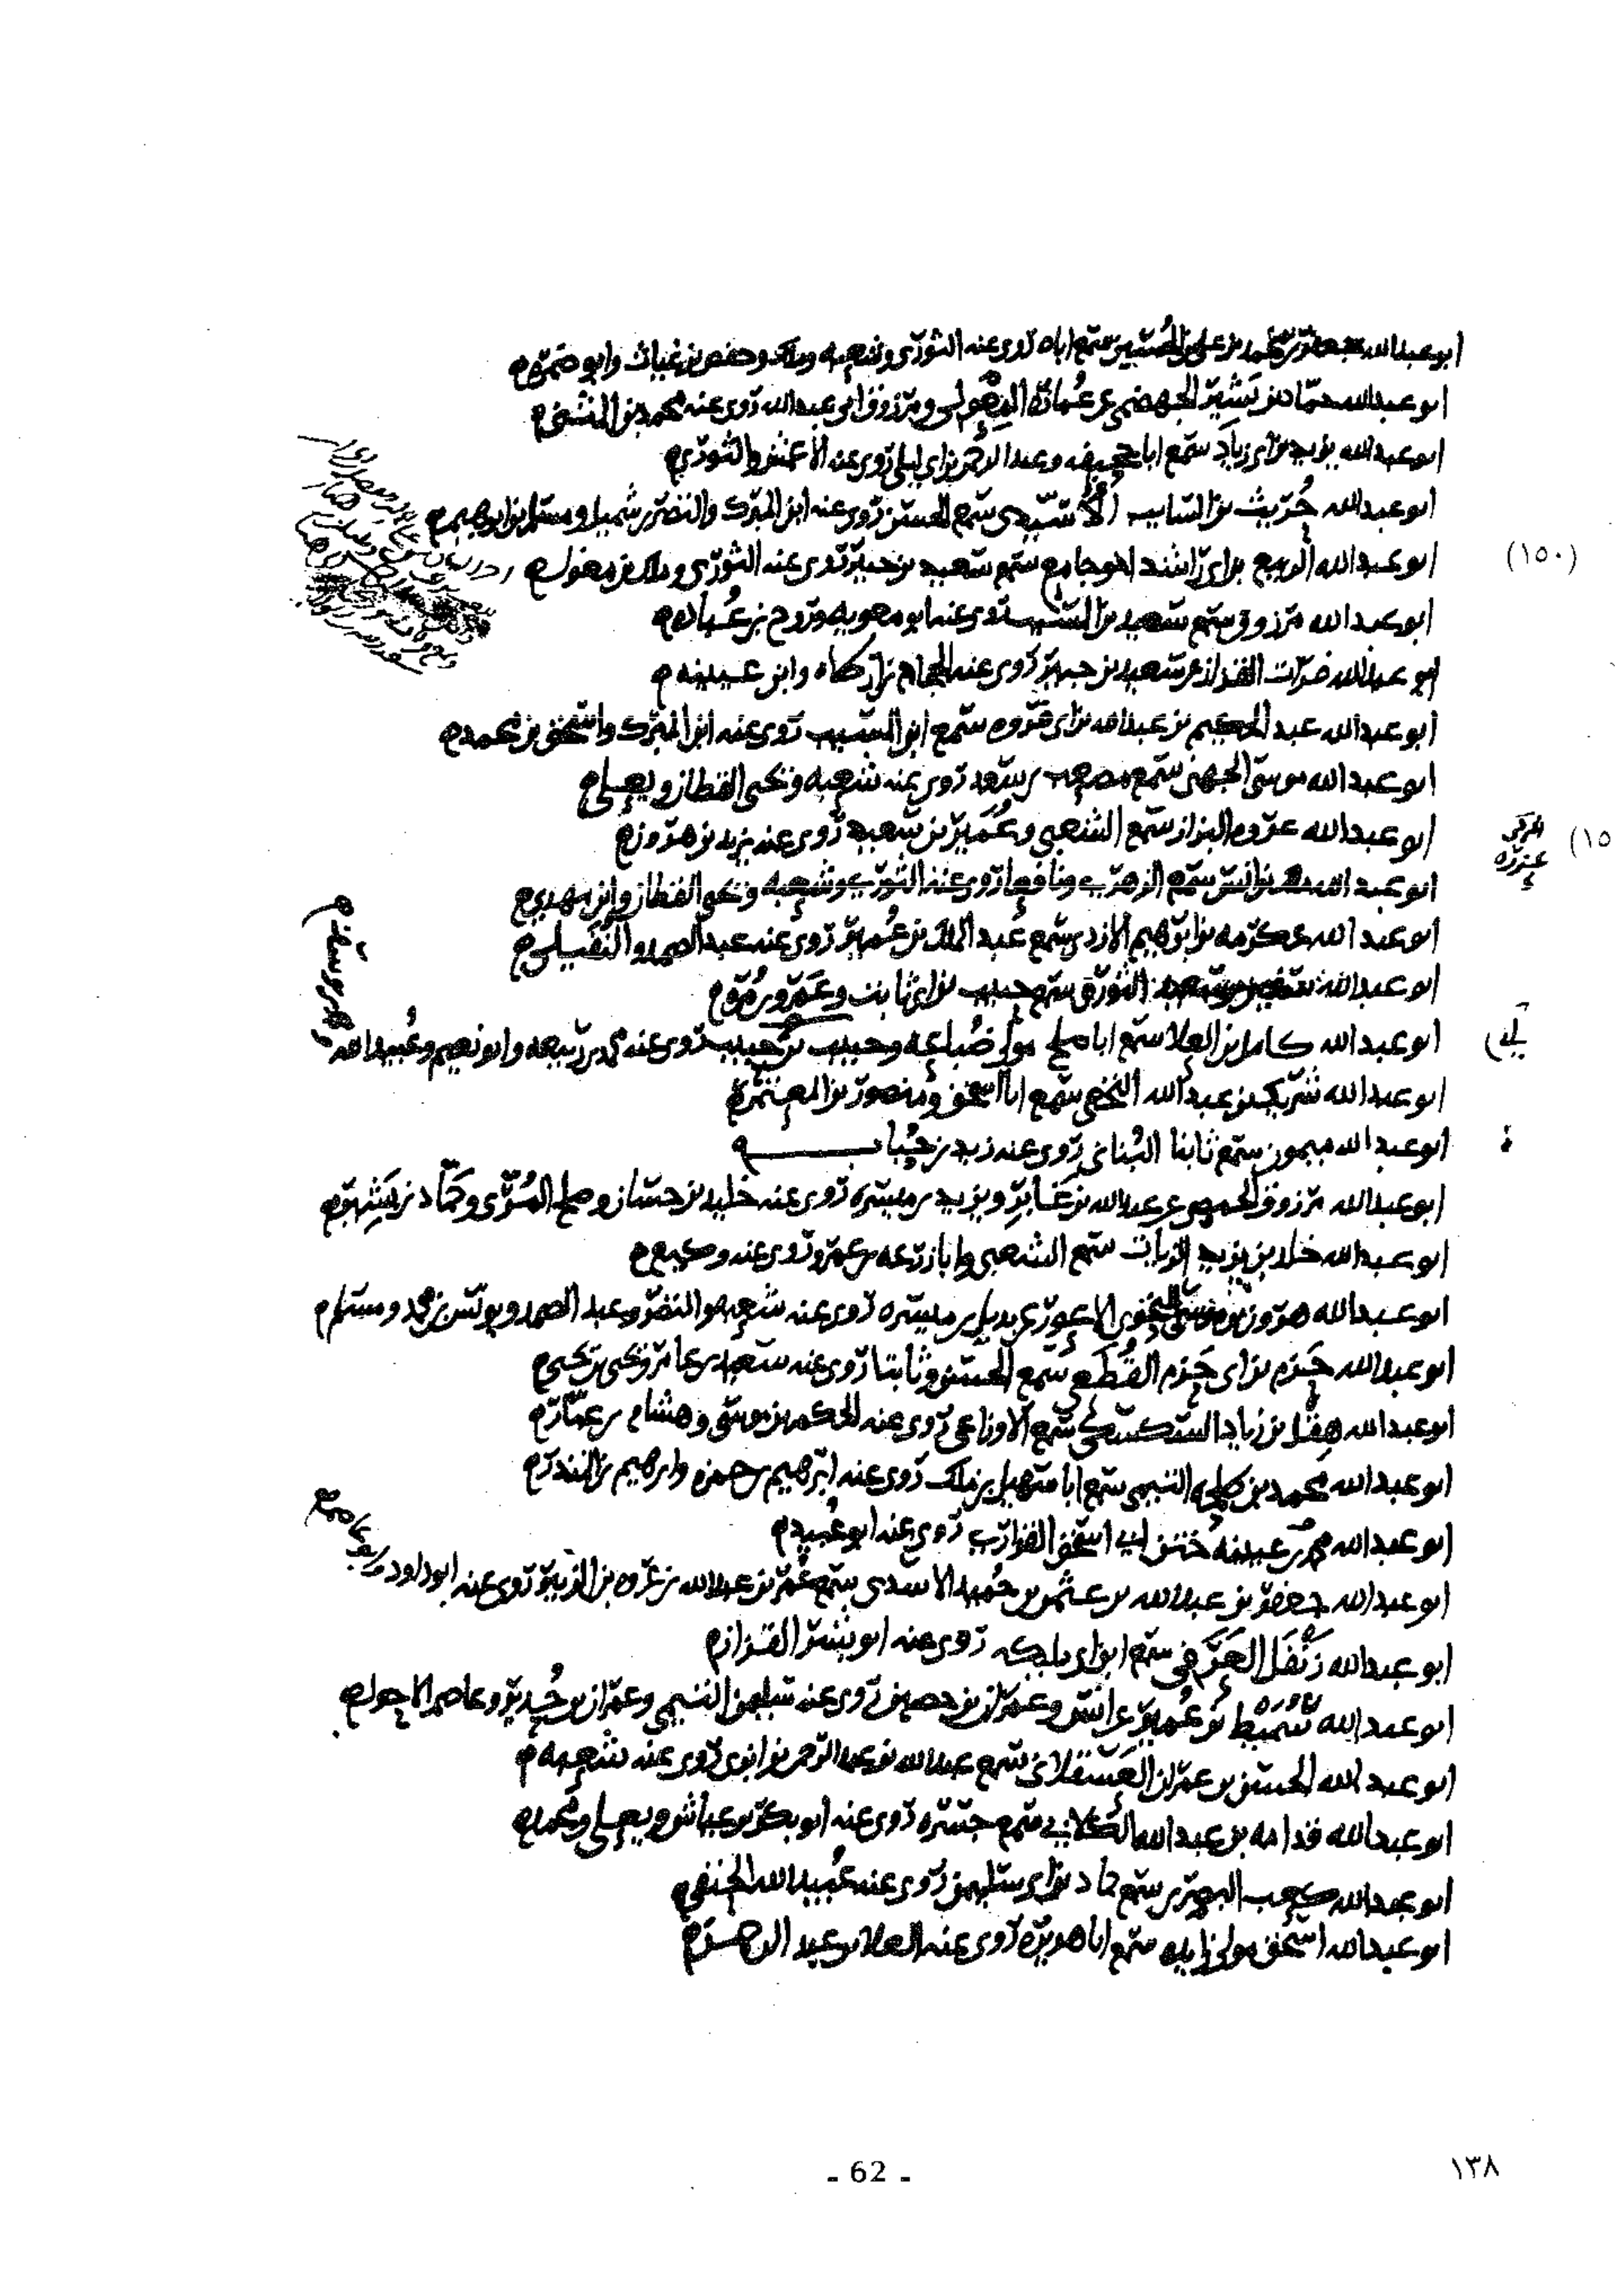 ابو عبد الله جعفر بن محمد بن علي بن الحسين سمع اباه روى عنه الثوري وشعبه وملك وحفص بن غياث وابو ضمره
ابو عبد الله حماد بن بشير الجهضمي عن عماره المهولي ومرزوق ابي عبد الله روى عنه محمد بن المثنى
ابو عبد الله يزيد بن ابي زياد سمع ابا جحيفه وعبد الرحمن بن ابي ليلى روى عنه الاعمش والثوري
ابو عبد الله حريث بن السايب الاسيدي سمع الحسن روى عنه ابن المبرك والنضر بن شميل ومسلم بن ابرهيم
(١٥٠)
ابو عبد الله الربيع بن ابي راشد اخو جامع سمع سعيد بن جبير روى عنه الثوري وملك بن مغول
ابو عبد الله مرزوق سمع سعيد بن المسيب روى عنه ابو معويه وروح بن عباده
ابو عبد الله ضرار عن سعيد بن جبير روى عنه الحجاج بن ارطاه وابن عيينه
ابو عبد الله عبد الحكيم بن عبد الله بن ابي فروه سمع ابن المسيب روى عنه ابن المبرك واسحق بن محمد
ابو عبد الله موسى الجهني سمع مصعب بن سعد روى عنه شعبه ويحيى القطان ويعلى
ابو عبد الله عروه البزاز سمع الشعبي وعمير بن سعيد روى عنه يزيد بن هرون
(١٥
ابو عبد الله ملك بن انس سمع الزهري ونافعا روى عنه الثوري وشعبه ويحيى القطان وابن مهدي
ابو عبد الله عكرمه بن ابرهيم الازدي سمع عبد الملك بن عمير روى عنه عبد الصمد والنفيلي
ابو عبد الله سفين بن سعيد الثوري سمع حبيب بن ابي ثابت وعمرو بن مره
ابو عبد الله كامل بن العلا سمع ابا صلح مولى ضباعه وحبيب بن حبيب روى عنه محمد بن ربيعه وابو نعيم وعبيد الله
ابو عبد الله شريك بن عبد الله النخعي سمع ابا اسحق ومنصور بن المعتمر
ابو عبد الله ميمون سمع ثابتا البناني روى عنه زيد بن حباب
ابو عبد الله مرزوق الحمصي عن عبد الله بن غابر ويزيد بن ميسره روى عنه خليد بن حسان وصلح المري وحماد بن بشير
ابو عبد الله خلاد بن يزيد الزيات سمع الشعبي وابا زرعه بن عمرو روى عنه وكيع
ابو عبد الله هرون بن موسى النحوي الاعور عن بديل بن ميسره روى عنه شعبه والنضر وعبد الصمد ويونس بن محمد ومسلم
ابو عبد الله حزم بن ابي حزم القطعي سمع الحسن وثابتا روى عنه سعيد بن عامر ويحيى بن يحيى
ابو عبد الله هقل بن زياد السكسكي سمع الاوزاعي روى عنه الحكم بن موسى وهشام بن عمار
ابو عبد الله محمد بن طلحه التيمي سمع ابا سهيل بن ملك روى عنه ابرهيم بن حمزه وابرهيم بن المنذر
ابو عبد الله محمد بن عيينه ختن ابي اسحق الفزاري روى عنه ابو عبيد
ابو عبد الله جعفر بن عبد الله بن عثمن بن حميد الاسدي سمع عمر بن عبد الله بن عروه بن الزبير روى عنه ابو داود وابو عاصم
ابو عبد الله زنفل العرفي سمع ابن ابي مليكه روى عنه ابو بشر القزاز
ابو عبد الله شميط بن عمير عن انس وعمران بن حصين روى عنه سليمن التيمي وعمران بن حدير وعاصم الاحول
ابو عبد الله الحسن بن عمران العسقلاني سمع عبد الله بن عبد الرحمن بن ابزى روى عنه شعبه
ابو عبد الله قدامه بن عبد الله الكلابي سمع جسره روى عنه ابو بكر بن عياش ويعلى ومحمد
ابو عبد الله كعب البصري سمع حماد بن ابي سليمن روى عنه عبيد الله الحنفي
ابو عبد الله اسحق مولى زايده سمع ابا هريره روى عنه العلا بن عبد الرحمن
- 62 -
١٣٨